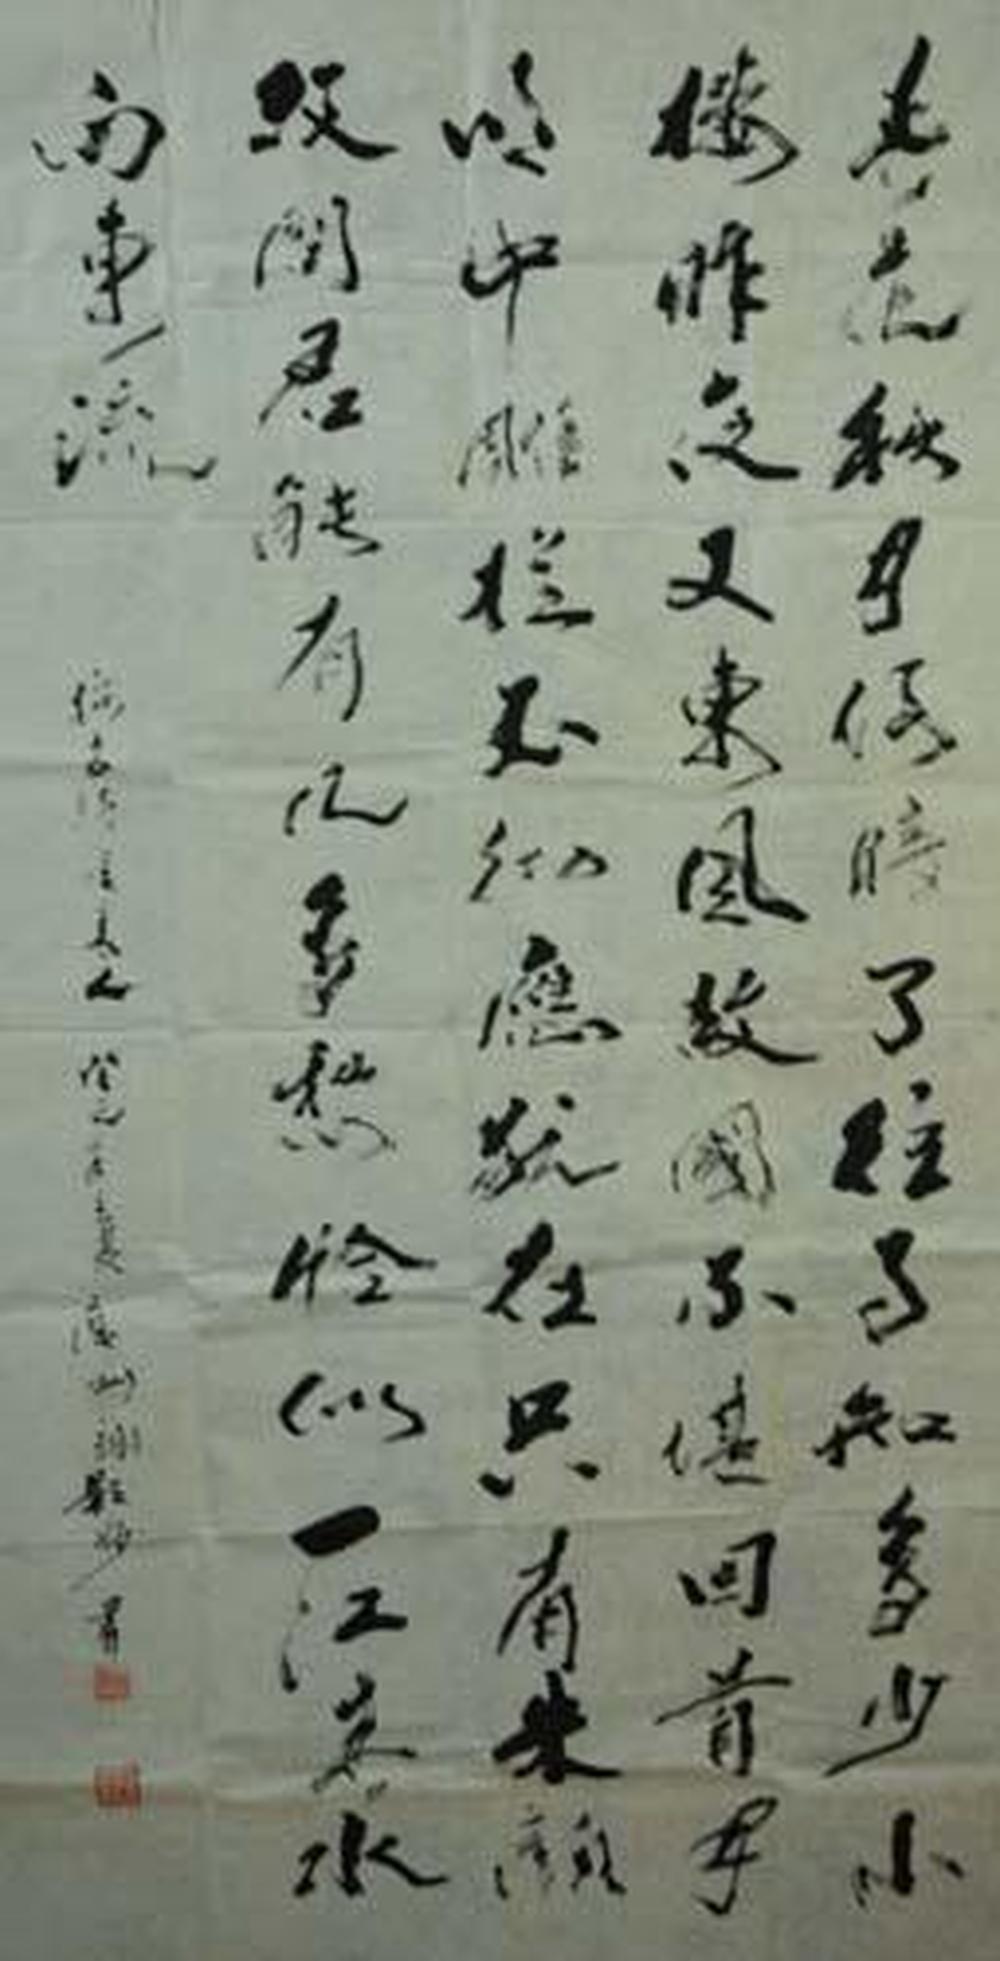 春花秋月何時了往事知多少小
樓昨夜又東風故國不堪回首月
明中雕栏玉砌應猶在只有朱顏
改問君能有几多愁恰似一江春水
向東流